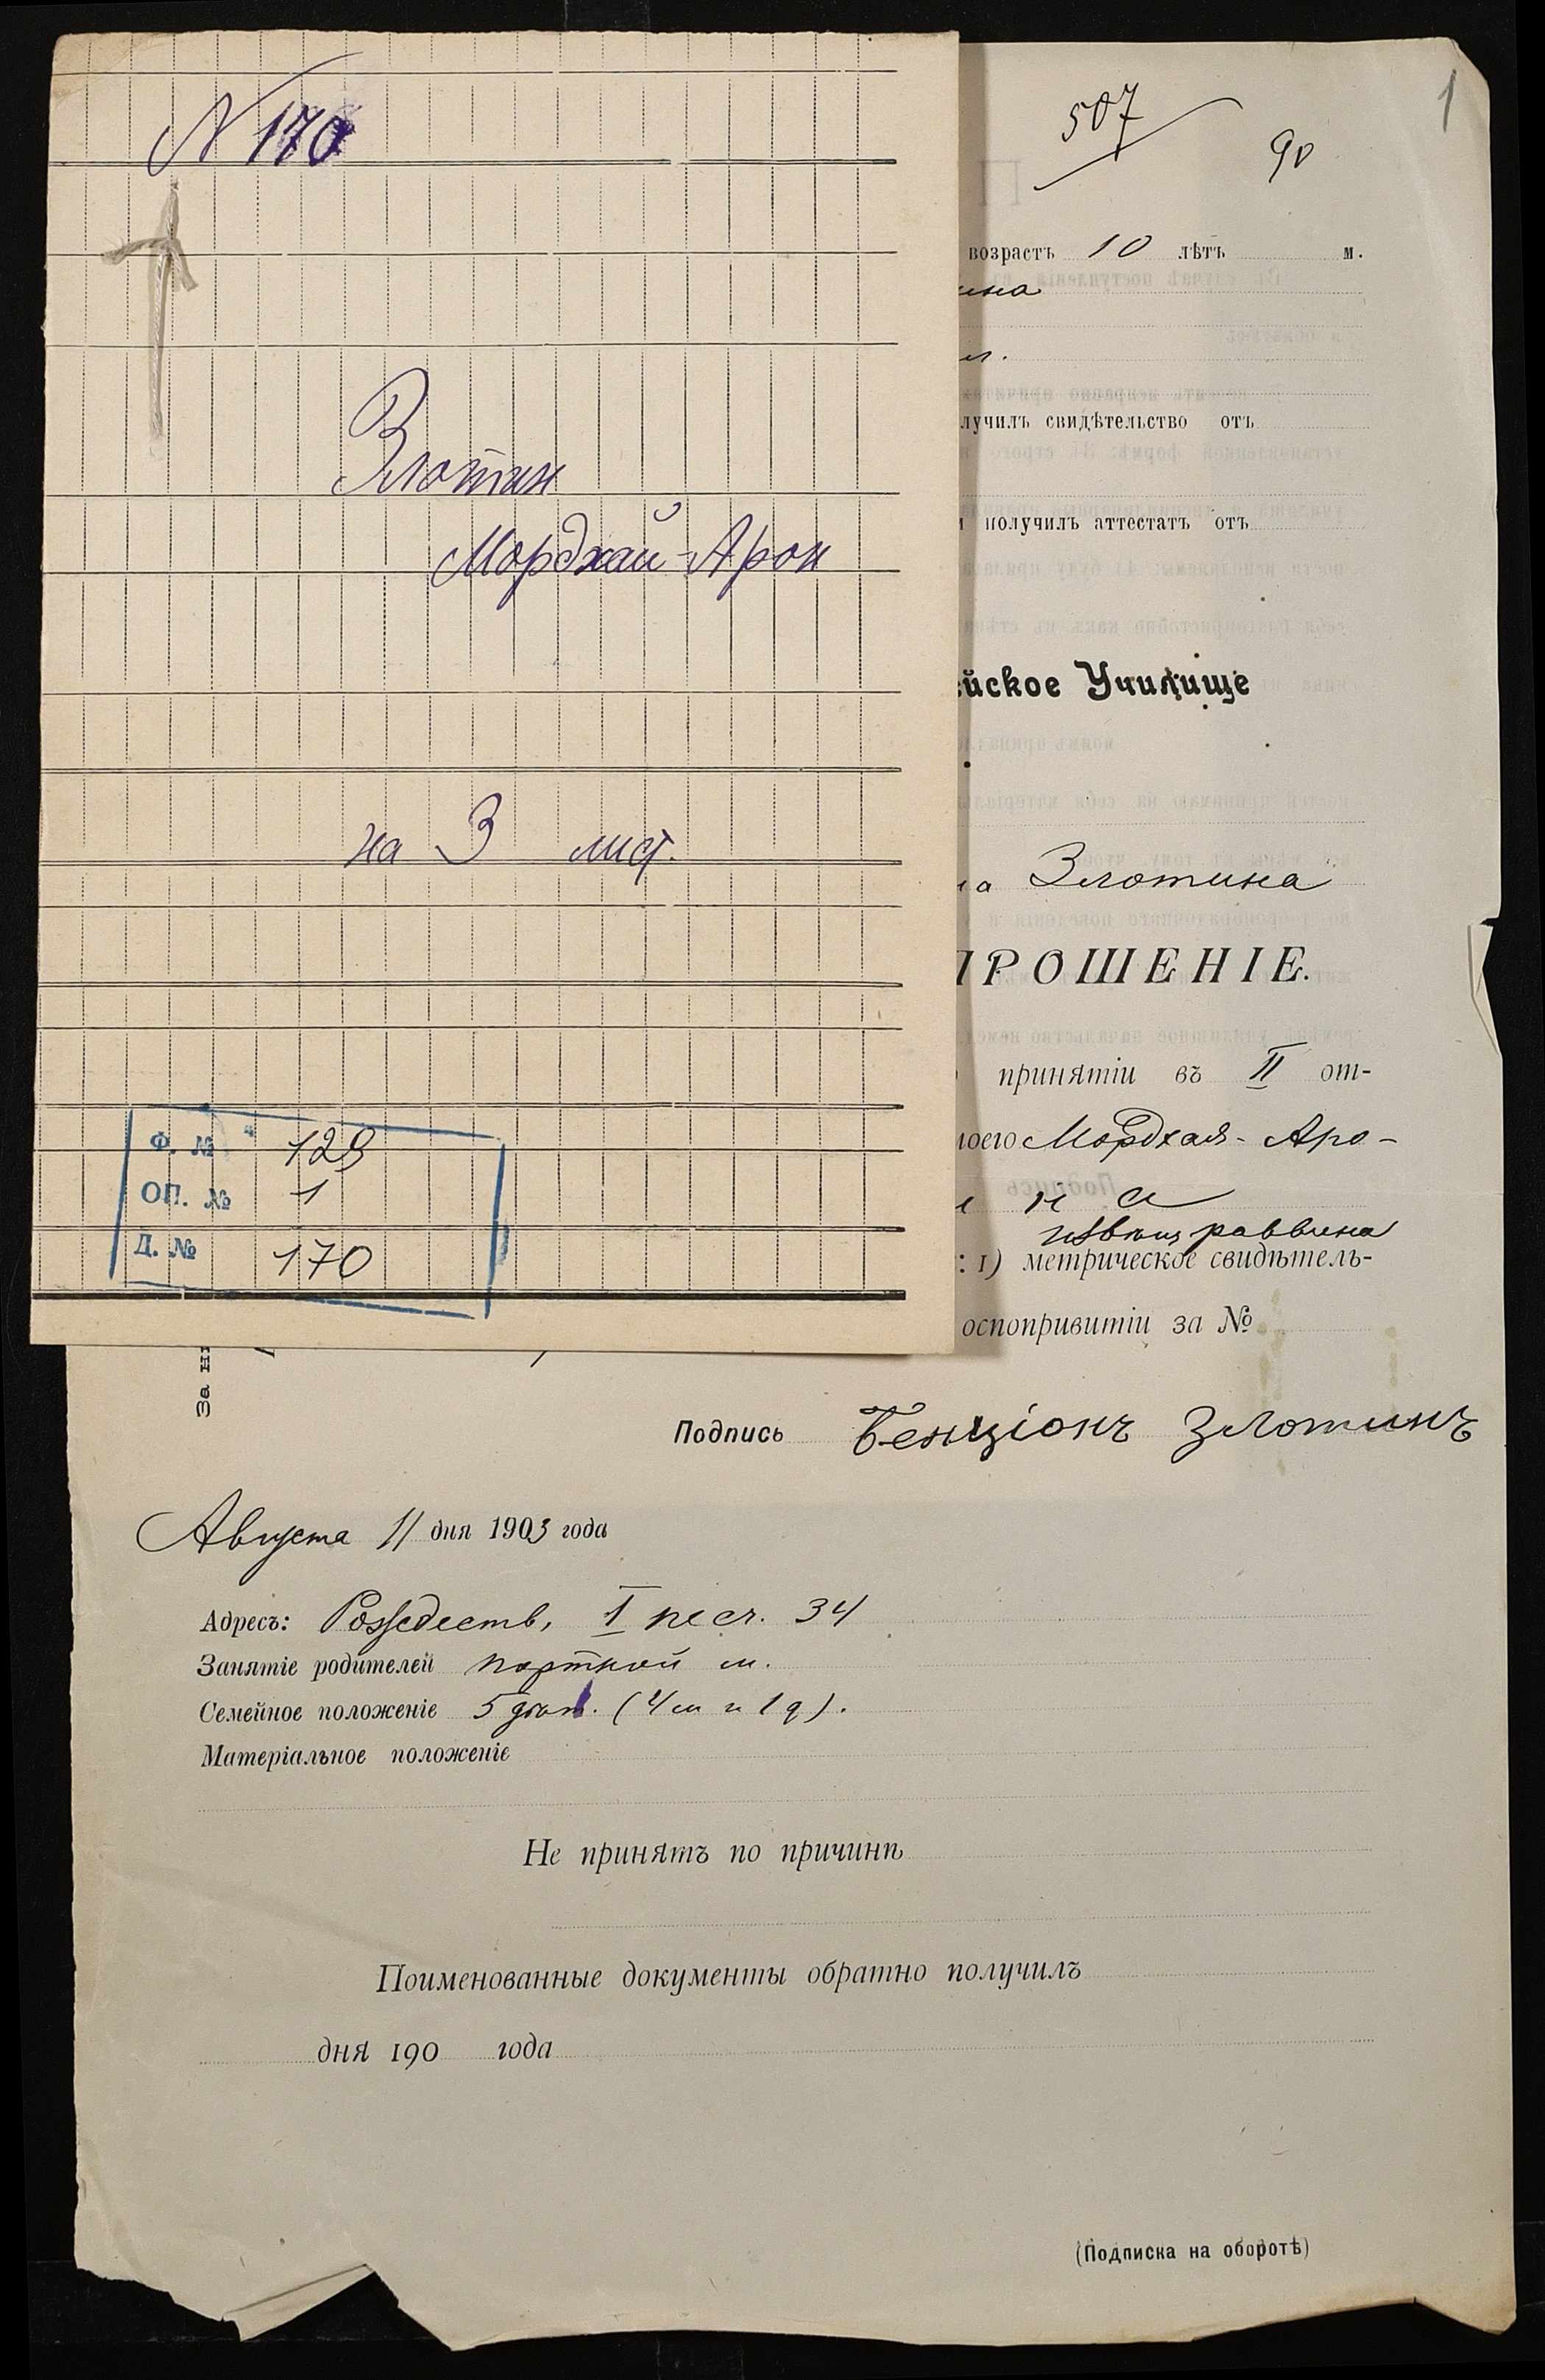 N 170
Злотин
Мордхай-Арон
на 3 лист.
Ф. № 129
ОП. № 1
Д. № 170
1
507
90
возрастъ 10 лѣтъ м.
ина
лучилъ свидѣтельство отъ
получилъ аттестатъ отъ
йское Училище
на Злотина
ПРОШЕНІЕ.
принятіи въ II от-
моего Мордхая-Аро-
на
раввина
: 1) метрическое свидѣтель-
оспопривитіи за №
За
Подпись Бенціонъ Злотинъ
Августа 11 дня 1903 года
Адресъ: Рождеств. I песч. 34
Занятіе родителей портной м.
Семейное положеніе 5 дѣт. (4 м и 1 д).
Матеріальное положеніе
Не принятъ по причинѣ
Поименованные документы обратно получилъ
дня 190 года
(Подписка на оборотѣ)